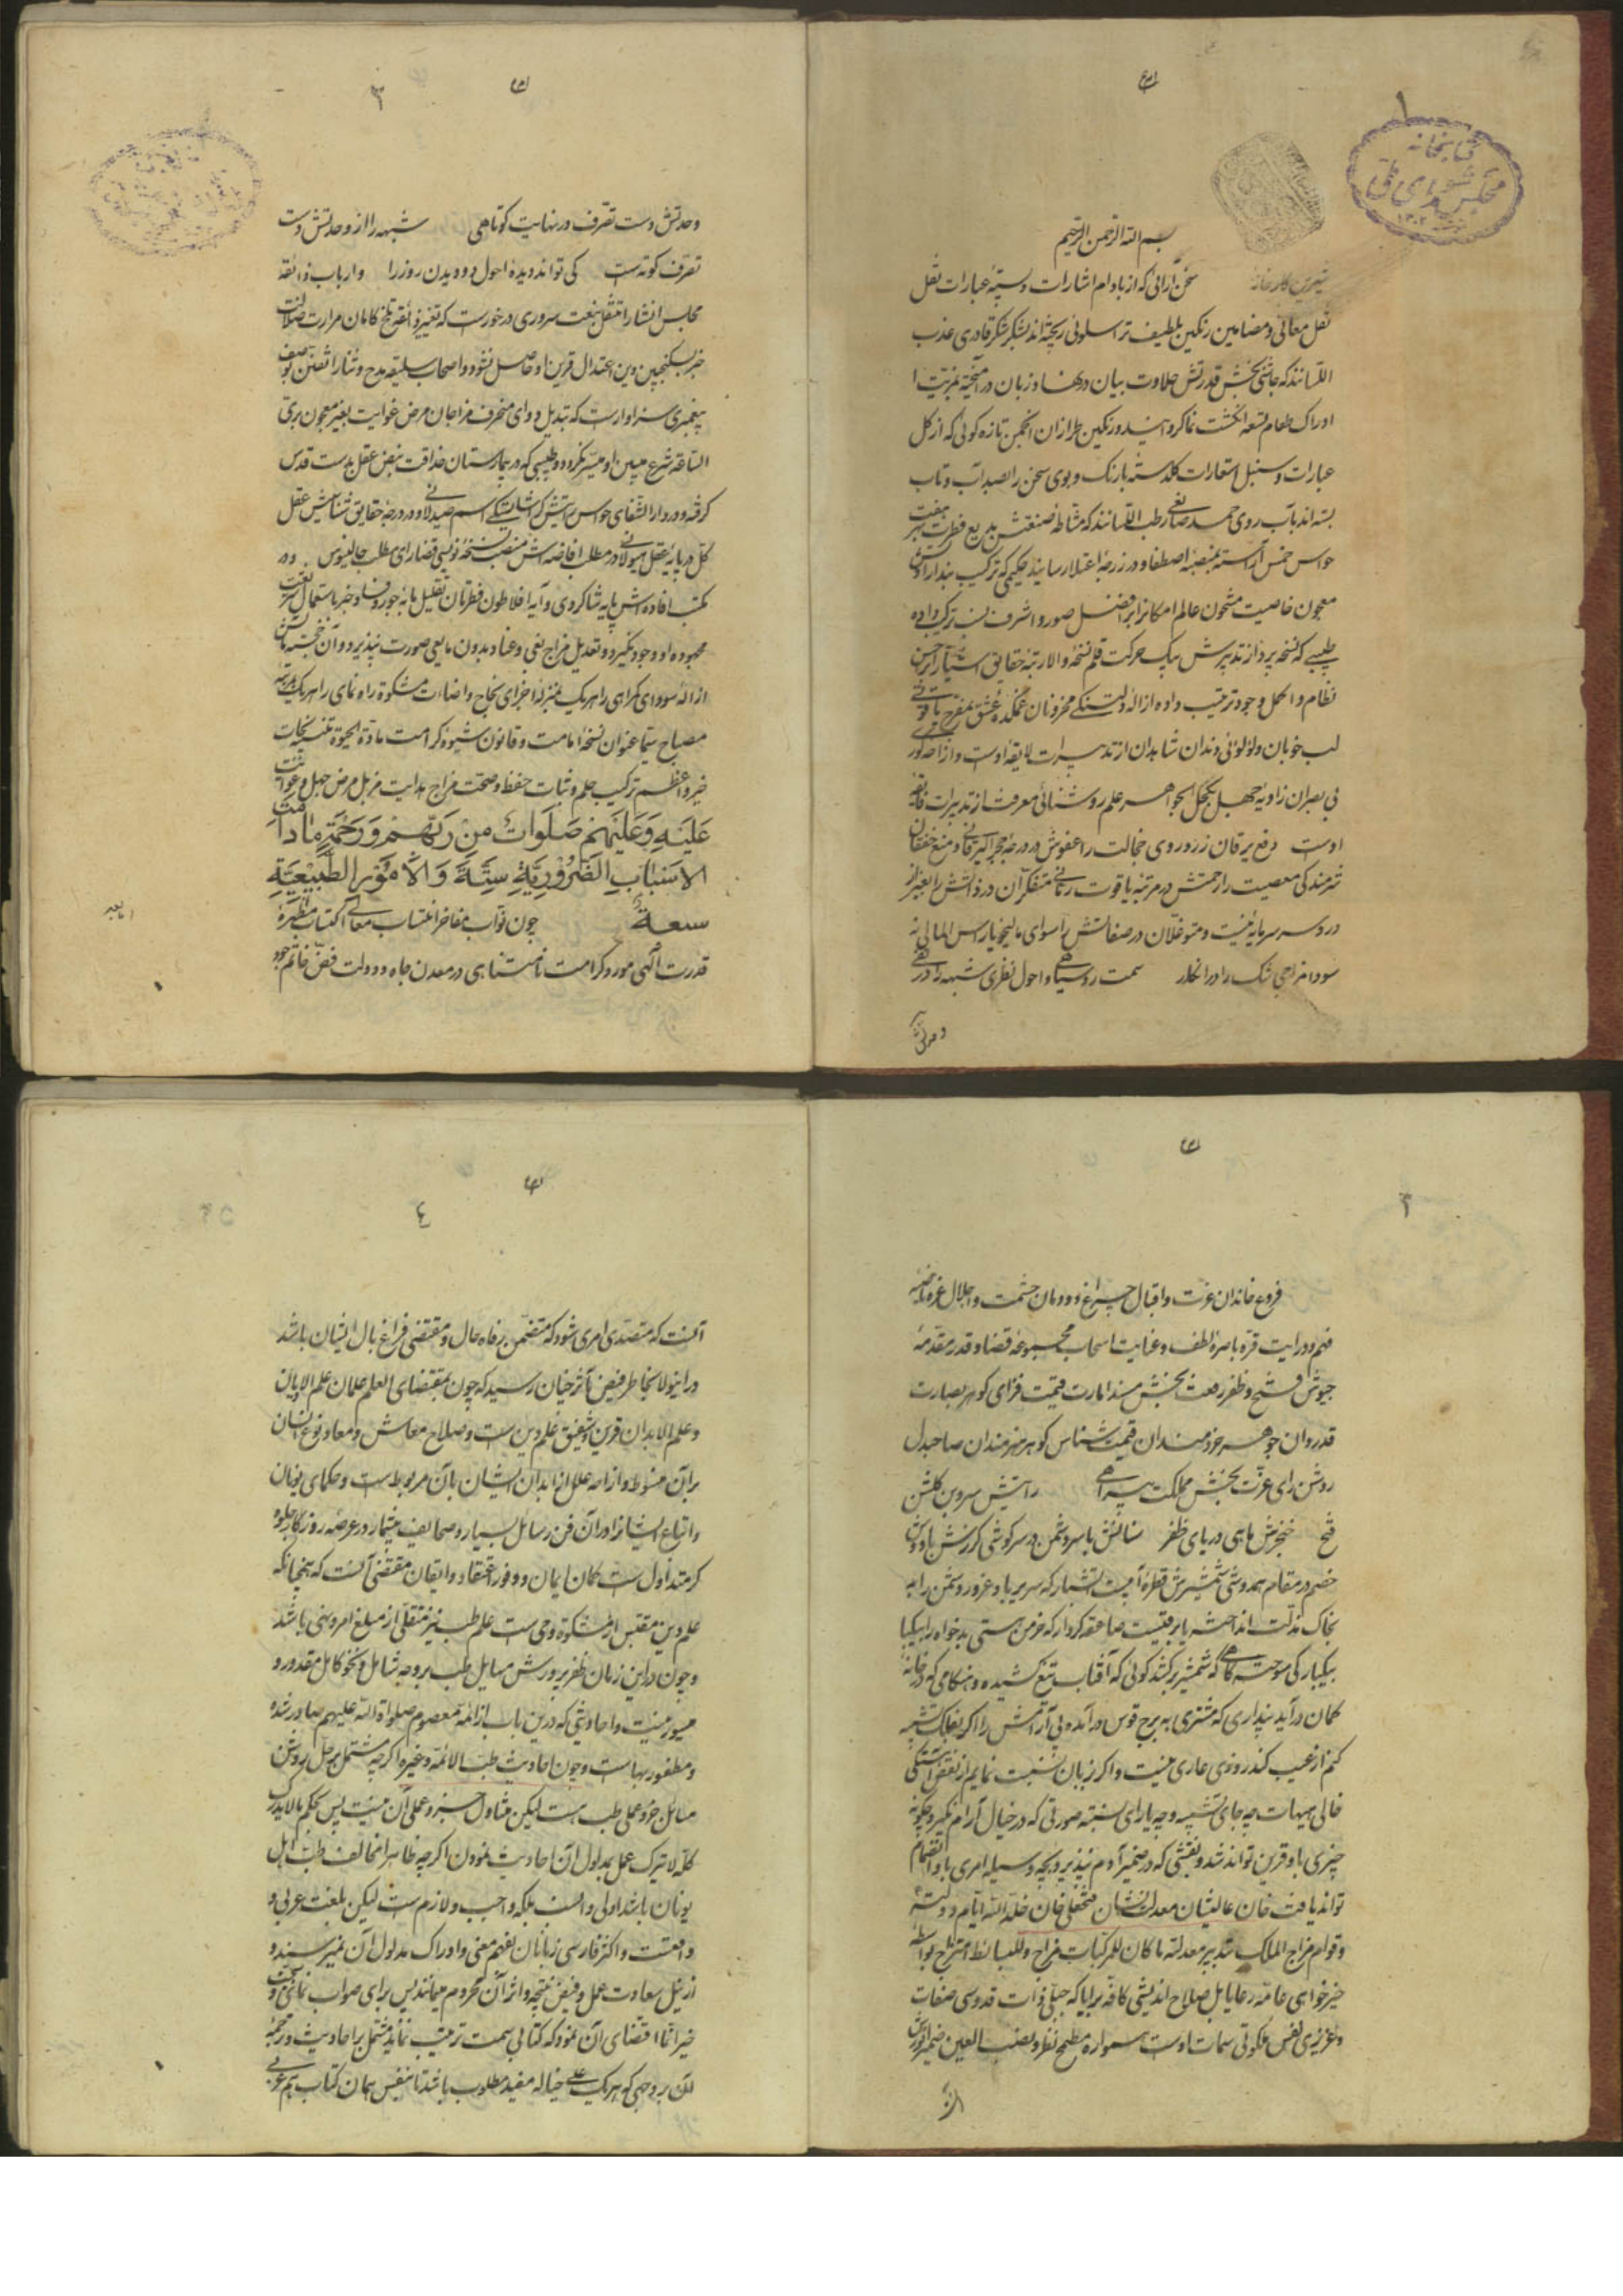 بسم الله الرحمن الرحیم
شیرین کار خانه سخن آرائی که از بادام اشارات و پسته عبارات نقل
نقل معانی و مضامین رنگین بلطیف تر اسلوبی ریخته اند بشکر شکر قادری عذب
اللسانند که چاشنی بخش قدرتش حلاوت بیان در دهنها و زبان در آمیخته
ادراک طعام تسعه انگشت نما گردانید و رنگین طرازان انجمن تازه گوئی که از گل
عبارات و سنبل استعارات گلدسته بارنگ و بوی سخن را بصد آب و تاب
بسته اند بآب روی حمد صانعی رطب اللسانند که مشاطه صنعتش بدیع فطرت
حواس خمس آراسته بمنصبه اصطفا و در زرجه اعتلا رسانید حکیمی که ترکیب بند ارادتش
معجون خاصیت مشحون عالم امکانرا بر افضل صور و اشرف نسب ترکیب داده
طبیبی که نسخه پرداز تدبیرش بیک حرکت قلم نسخه والا رتبه حقایق اشیا را بر احسن
نظام و اکمل وجود ترتیب داده ازاله دلتنگی محزونان غمکده عشق بمفرح یاقوتی
لب خوبان و لؤلوئی دندان شاهدان از تدبیرات لایقه اوست و ازاحه
بی بصران زاویه جهل بکحل الجواهر علم روشنائی معرفت از تدبیرات فایقه
اوست دفع یرقان زردروی خجالت را عفوش در درجه حجر البرقانی و منع خفقان
شرمندگی معصیت را رحمتش در مرتبه یاقوت رمانی متفکران در ذاتش را بغیر از
درد سر سرمایه نیست و متوغلان در صفاتش را سوای مالیخولیا راس المالی نه
سودا مزاجی شک را در انکار سمت روسیاهی و احول نظری شبهه را در
وحدتش دست تصرف در نهایت کوتاهی شبهه را از وحدتش دست
تصرف کوتهست کی تواند دیده احول دو دیدن روز را و ارباب ذائقه
مجالس انشا را تنقل بنعت سروری در خورست که تغییر ذائقه تلخ کامان مرارت ضلالت
جز بسکنجبین دین اعتدال قرین او حاصل نشود و اصحاب سلیقه مدح و ثنا را تفنن بوصف
پیغمبری سزاوارست که تبدیل دوای منحرف مزاجان مرض غوایت بغیر معجون برء
الساعه شرع مبین او میسر نگردد و طبیبی که در بیمارستان حذاقت نبض عقل بدست قدس
گرفته و در دار الشفای حواس
کل در پایه عقل هیولانی در مطلب افاضه اش منصب نسخه نویسی قضا را ای مطلب جالینوس و در
مکتب افاده اش پایه شاگردی و آیه افلاطون فطرتان تقلیل مایه جور و فساد جز باستعمال شربت
محموده او وجود نگیرد و تعدیل مزاج بغی و عناد بدون مایعی صورت نپذیرد و آن
ازاله سودای گمراهی را هر یک بمنزله اجزای نجاح و اضاءت مشکوة راه نمای را هر یک بمرتبه
مصباح سیما عنوان نسخه امامت و قانون شیوه کرامت مادة الحیوة
خیر و اعظم ترکیب حلم و ثبات حفظ و صحت مزاج هدایت مزیل مرض جهل و غوایت
عَلَیْهِ وَعَلَیْهِمْ صَلَوَاتٌ مِنْ رَبِّهِمْ وَرَحْمَةٌ مَا دَامَتِ
الاَسْبَابُ الضَّرُوْرِیَّةِ سِتَّةً وَالاُمُوْرُ الطَّبِیْعِیَّةِ
سبعة چون نواب مفاخر انتساب معالی اکتساب مظهر
قدرت الهی مورد کرامت نامتناهی در معدن جاه و دولت فص خاتم
فروغ خاندان عزت و اقبال چراغ دودمان حشمت و اجلال غره ناصیه
فهم و درایت قره باصره لطف و عنایت اسحاب مجموعه قضا و قدر مقدمه
جیوش فتح و ظفر رفعت بخش مسند امارت قیمت فزای گوهر بصارت
قدردان جوهر خردمندان قیمت شناس گوهر هنرمندان صاحبدل
روشن رای عزت بخش مملکت سرای رایتش سروبن گلشن
فتح خنجرش ماهی دریای ظفر سنانش با سر دشمن در سرگوشی گرزش با دوش
خصم در مقام همدوشی شمشیرش قطره آبیست آتشبار که سر پر باد غرور دشمن را به
خاک مذلت انداخته یا برقیست صاعقه کردار که خرمن هستی بدخواه را
بیکبار گی سوخته گاهی که شمشیر برکشد گوئی که آفتاب تیغ کشیده و هنگامی که در خانه
کمان درآید پنداری که مشتری به برج قوس درآمده بی آرامش را اگر بفلک تشبیه
کنم از عیب کند روی عاری نیست و اگر زبان نسبت نمایم از نقص
خالی هیهات چه جای تشبیه و چه یارای نسبت صورتی که در خیال آرام نگیرد چگونه
چیزی باو قرین تواند شد و نقشی که در ضمیر آدم نپذیرد بچه وسیله امری باو انضمام
تواند یافت خان عالیشان معدلت نشان فتحعلی خان خلد الله ایام دولته
و قوام مزاج الممالک بتدبیر معدلته ما کان للمرکبات مزاج و للبسائط امتزاج
خیرخواهی عامه رعایا بل صلاح اندیشی کافه برایا که جبلی ذات قدوسی صفات
و غریزی نفس ملکوتی سمات اوست همواره مطمح نظر و نصب العین ضمیر
آنست که متصدی امری شود که متضمن رفاه حال و مقتضی فراغ بال ایشان باشد
و دراینولا بخاطر فیض مآثر چنان رسید که چون بمقتضای العلم علمان علم الادیان
و علم الابدان قرین و شفیق علم دین ست و صلاح معاش و معاد نوع انسان
بر آن منوط و ازاحه علل از ابدان ایشان بآن مربوطست و حکمای یونان
و اتباع ایشانرا در آن فن رسائل بسیار و صحایف بیشمار در عرصه روزگار جلوه
گر متداول ست کمال ایمان و وفور اعتقاد و ایقان مقتضی آنست که همچنانکه
علم دین مقتبس از مشکوة وحی ست علم طب نیز متلقی از مبلغ امر و نهی باشد
و چون در این زمان ظفر بر ورش مسایل طب بر وجه شامل و نحو کامل مقدور و
میسور نیست و احادیثی که درین باب از ائمه معصوم صلوات الله علیهم صادر شده
و مظفور بهاست و چون احادیث طب الائمه و غیره اگرچه مشتمل بر جل
مسائل جزو عملی طب هست لیکن متناول جزو علمی آن نیست پس بحکم ما لا یدرک
کله لا یترک عمل بمدلول آن احادیث نمودن اگرچه ظاهرا مخالف طب اهل
یونان باشد اولی و انسب بلکه واجب و لازم ست لیکن بلغت عربی
واقعست و اکثر فارسی زبانان بفهم معنی و ادراک مدلول آن نمیرسند و
از نیل سعادت عمل و فیض نتیجه و اثر آن محروم میمانند پس برای صواب نمای
خیر انتما اقتضای آن نمود که کتابی سمت ترتیب نماید مشتمل بر احادیث و ترجمه
آن بر وجهی که هر یک علی حیاله مفید مطلوب باشد تا بنفس همان کتاب هم عربی
کتابخانه
مجلس شورای ملی